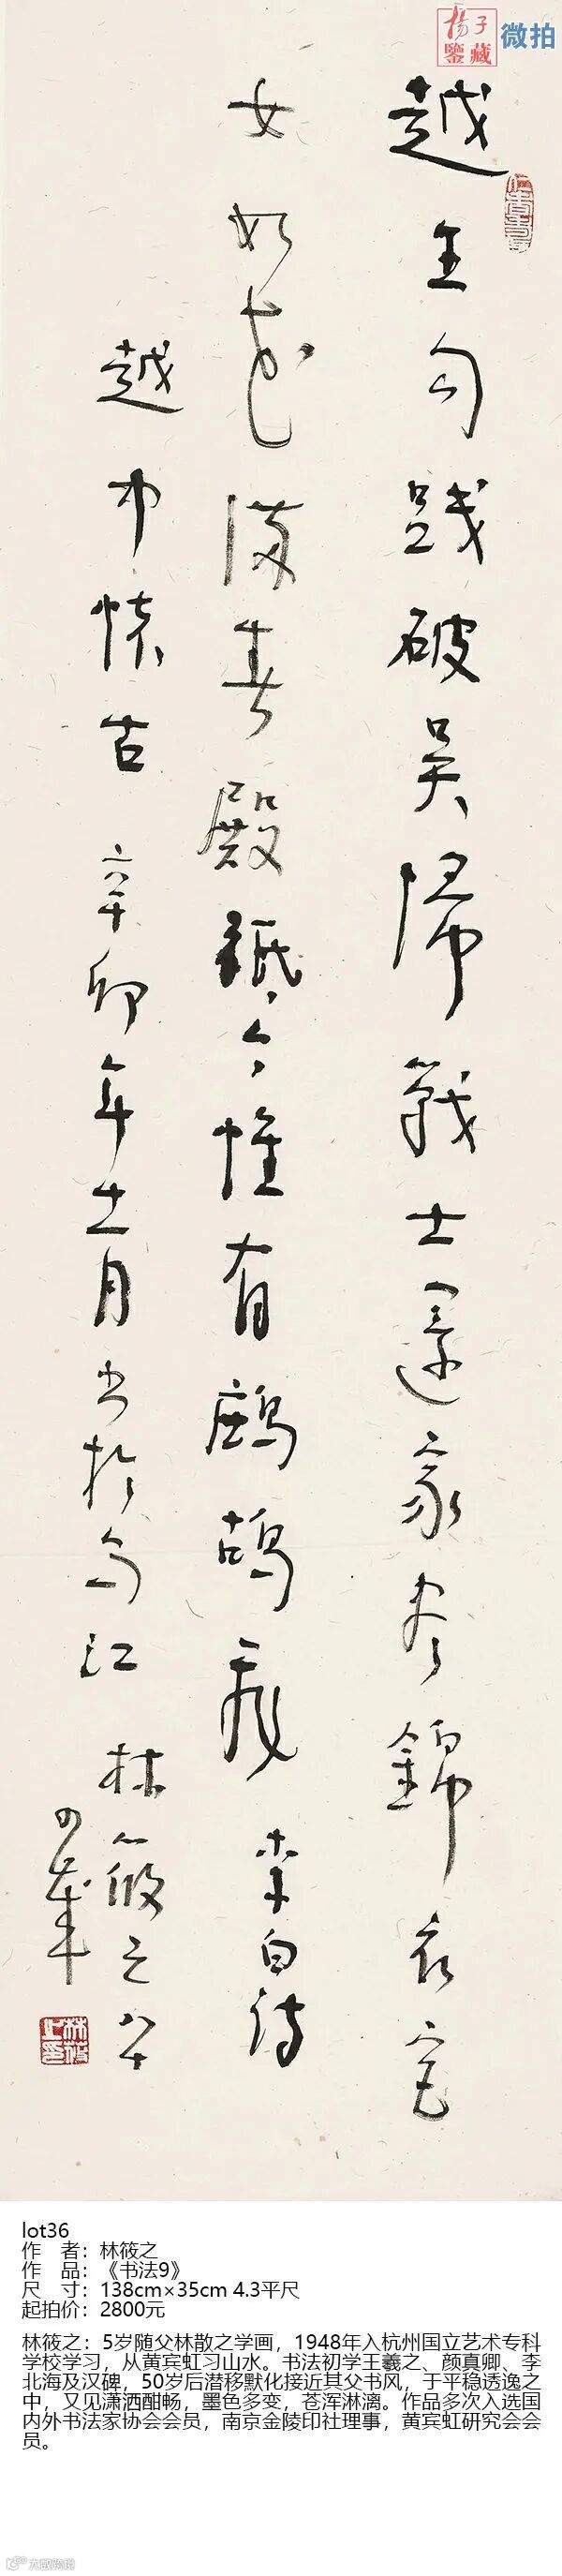 揚子
鑒藏
微拍
越王勾踐破吳歸戰士還家盡錦衣宮
女如花滿春殿祗今惟有鷓鴣飛 李白詩
越中懷古 辛卯年十一月書於烏江 林筱之八十
四歲
林筱之印
lot36
作 者：林筱之
作 品：《书法9》
尺 寸：138cm×35cm 4.3平尺
起拍价：2800元
林筱之：5岁随父林散之学画，1948年入杭州国立艺术专科
学校学习，从黄宾虹习山水。书法初学王羲之、颜真卿、李
北海及汉碑，50岁后潜移默化接近其父书风，于平稳透逸之
中，又见潇洒酣畅，墨色多变，苍浑淋漓。作品多次入选国
内外书法家协会会员，南京金陵印社理事，黄宾虹研究会会
员。